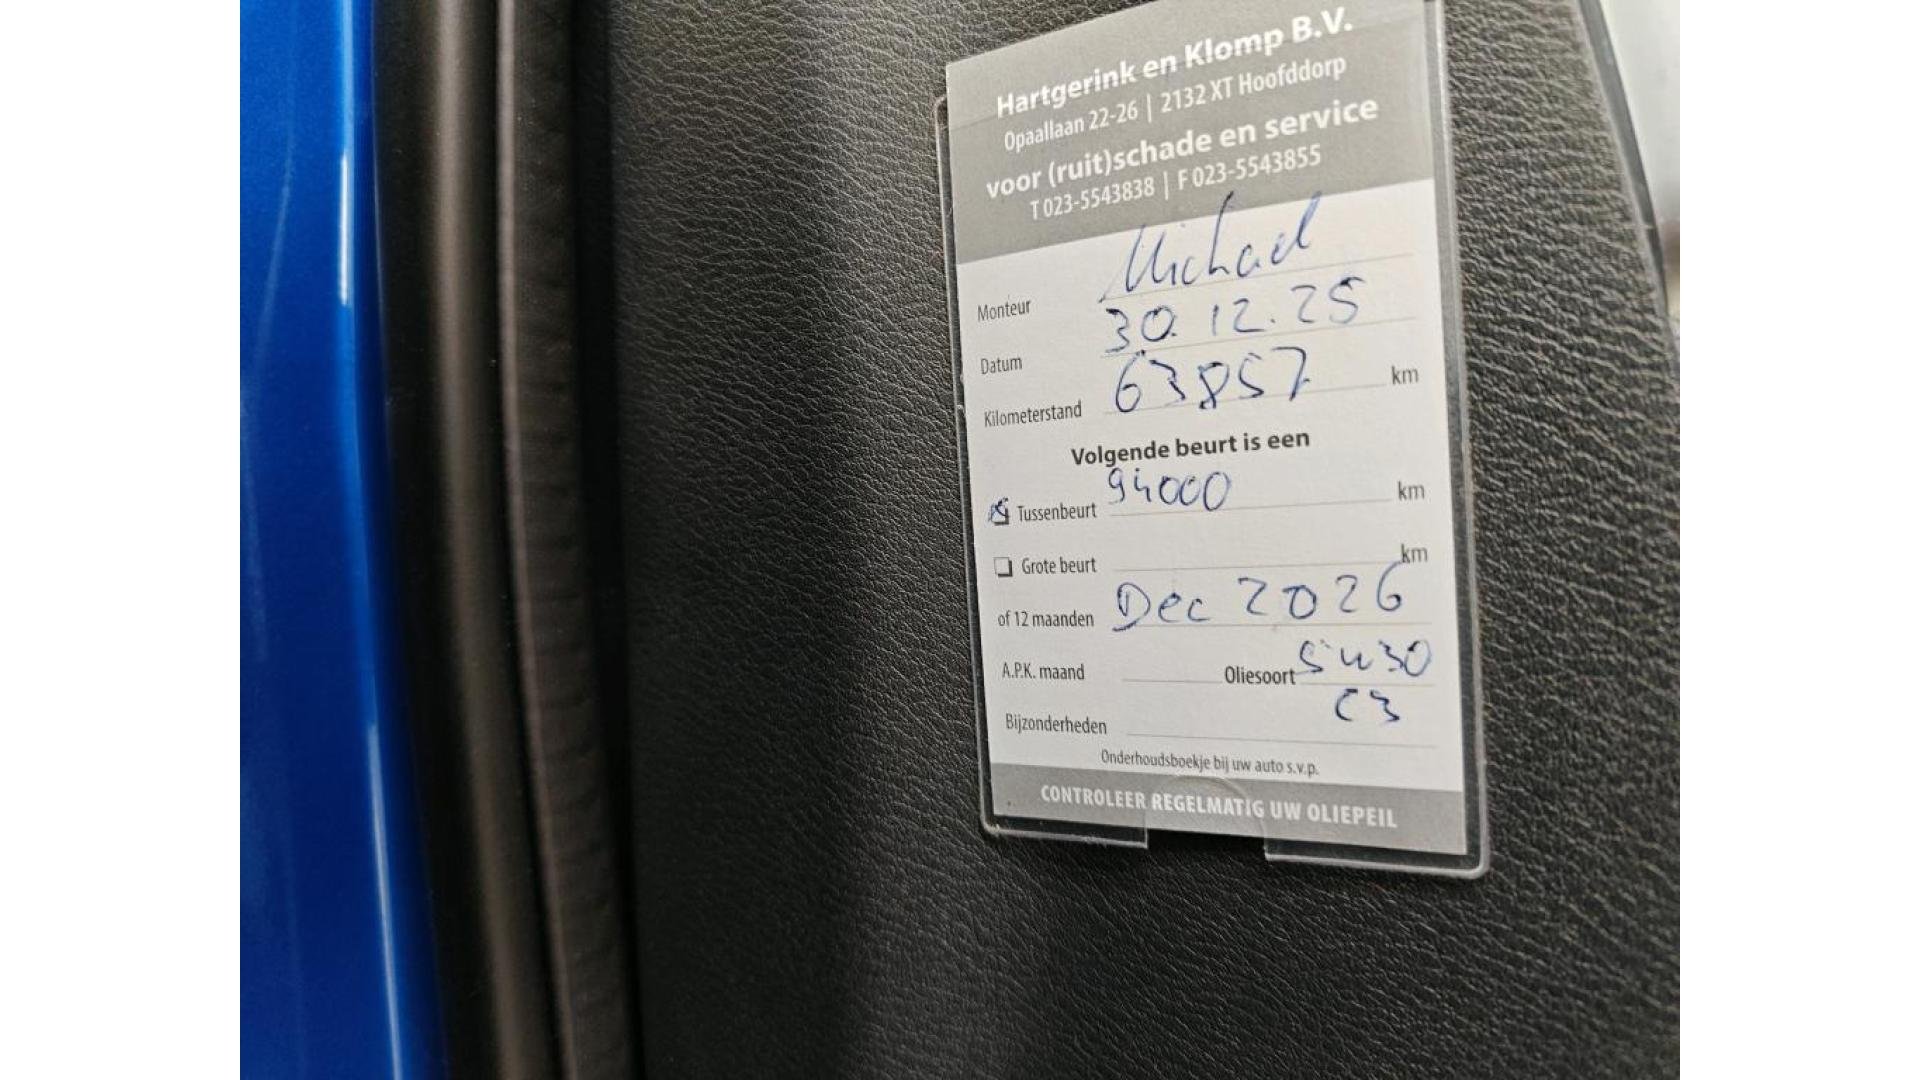 Hartgerink en Klomp B.V.
Opaallaan 22-26 | 2132 XT Hoofddorp
voor (ruit)schade en service
T 023-5543838 | F 023-5543855
Monteur Michael
Datum 30.12.25
Kilometerstand 63857 km
Volgende beurt is een
Tussenbeurt 94000 km
Grote beurt km
of 12 maanden Dec 2026
A.P.K. maand Oliesoort 5W30
C3
Bijzonderheden
Onderhoudsboekje bij uw auto s.v.p.
CONTROLEER REGELMATIG UW OLIEPEIL